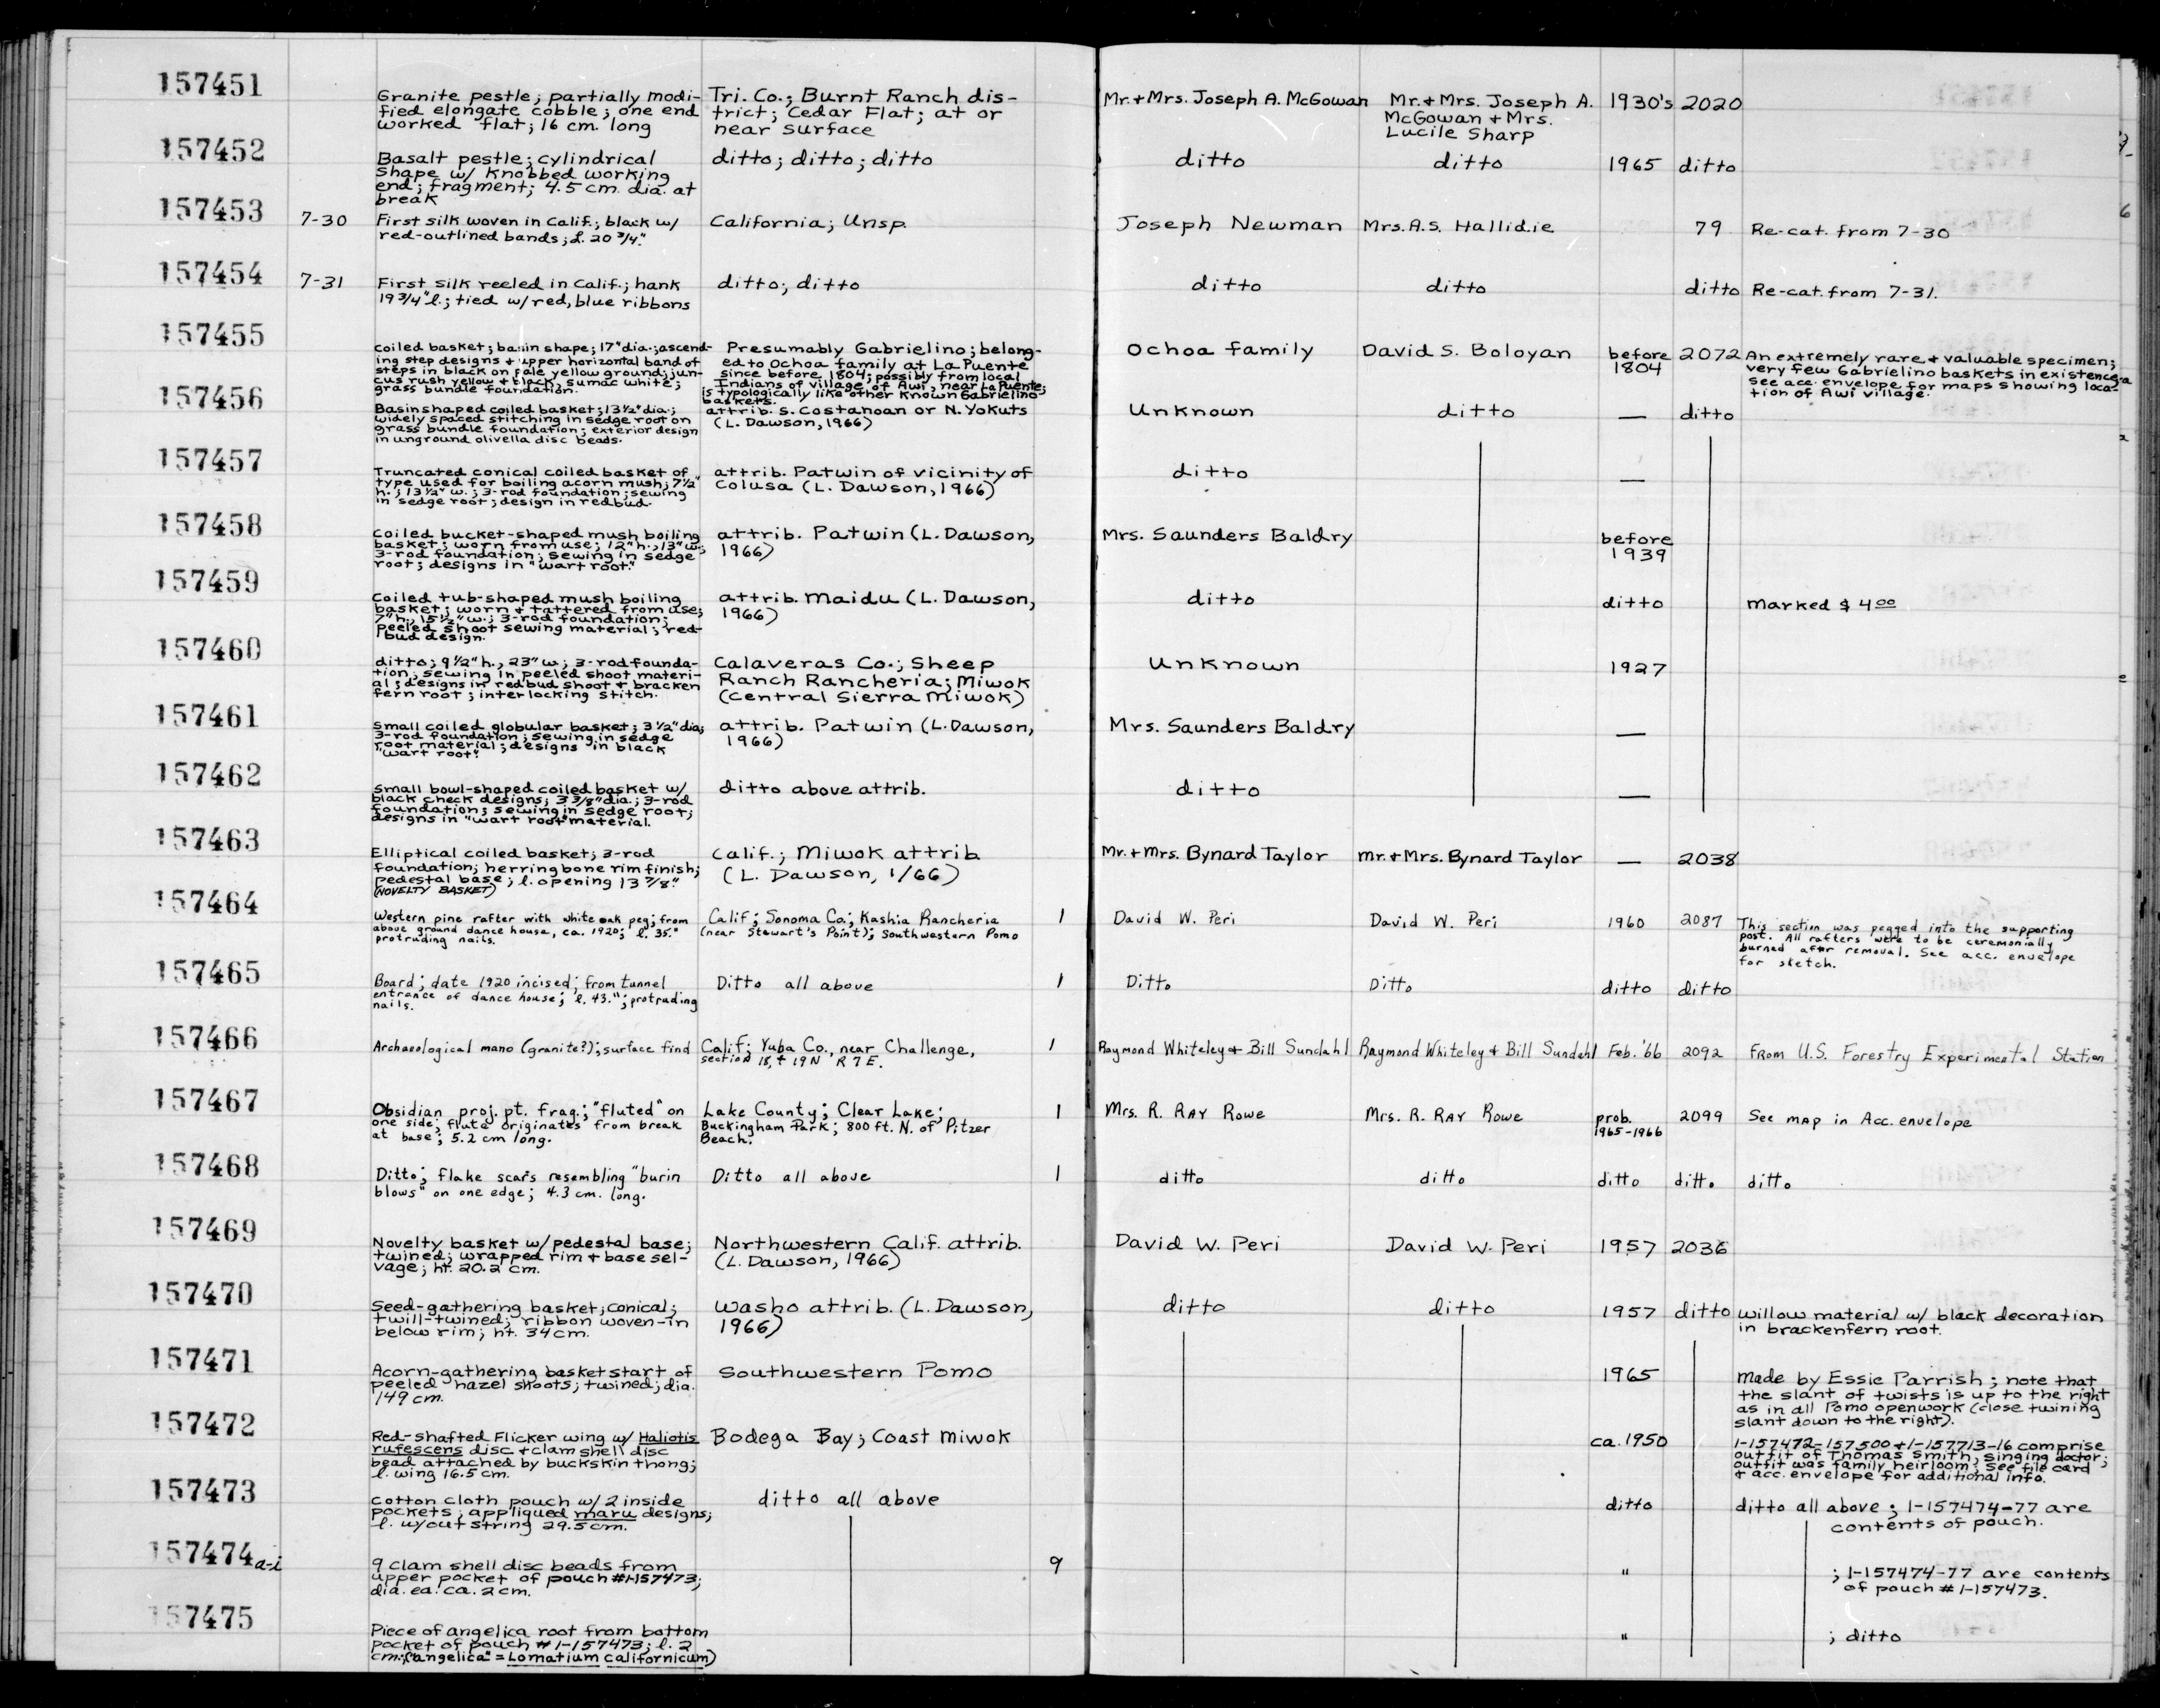 157451
Granite pestle; partially modi-
fied elongate cobble; one end
worked flat; 16 cm. long
Tri. Co.; Burnt Ranch dis-
trict; Cedar Flat; at or
near surface
Mr. + Mrs. Joseph A. McGowan
Mr. + Mrs. Joseph A.
McGowan + Mrs.
Lucile Sharp
1930's
2020
157452
Basalt pestle; cylindrical
shape w/ knobbed working
end; fragment; 4.5 cm. dia. at
break
ditto; ditto; ditto
ditto
ditto
1965
ditto
157453
7-30
First silk woven in Calif.; black w/
red-outlined bands; l. 20 3/4"
California; Unsp.
Joseph Newman
Mrs. A.S. Hallidie
79
Re-cat. from 7-30
157454
7-31
First silk reeled in Calif.; hank
19 3/4" l.; tied w/ red, blue ribbons
ditto; ditto
ditto
ditto
ditto
Re-cat. from 7-31.
157455
Coiled basket; basin shape; 17" dia.; ascend-
ing step designs + upper horizontal band of
steps in black on pale yellow ground; jun-
cus rush yellow + black, sumac white;
grass bundle foundation.
Presumably Gabrielino; belong-
ed to Ochoa family at La Puente
since before 1804; possibly from local
Indians of village of Awi, near La Puente;
is typologically like other known Gabrielino
baskets.
Ochoa family
David S. Boloyan
before
1804
2072
An extremely rare + valuable specimen;
very few Gabrielino baskets in existence
See acc. envelope for maps showing loca-
tion of Awi village.
157456
Basin shaped coiled basket; 13 1/2" dia.;
widely spaced stitching in sedge root on
grass bundle foundation; exterior design
in unground olivella disc beads.
attrib. S. Costanoan or N. Yokuts
(L. Dawson, 1966)
Unknown
ditto
—
ditto
157457
Truncated conical coiled basket of
type used for boiling acorn mush; 7 1/2"
h.; 13 1/2" w.; 3-rod foundation; sewing
in sedge root; design in redbud.
attrib. Patwin of vicinity of
Colusa (L. Dawson, 1966)
ditto
—
157458
Coiled bucket-shaped mush boiling
basket; worn from use; 12" h., 13" w.;
3-rod foundation; sewing in sedge
root; designs in "wart root."
attrib. Patwin (L. Dawson,
1966)
Mrs. Saunders Baldry
before
1939
157459
Coiled tub-shaped mush boiling
basket; worn + tattered from use;
7" h., 15 1/2" w.; 3-rod foundation;
peeled shoot sewing material; red-
bud design.
attrib. Maidu (L. Dawson,
1966)
ditto
ditto
Marked $4.00
157460
ditto; 9 1/2" h., 23" w.; 3-rod founda-
tion; sewing in peeled shoot materi-
al; designs in redbud shoot + bracken
fern root; interlocking stitch.
Calaveras Co.; Sheep
Ranch Rancheria; Miwok
(Central Sierra Miwok)
Unknown
1927
157461
Small coiled globular basket; 3 1/2" dia;
3-rod foundation; sewing in sedge
root material; designs in black
"wart root".
attrib. Patwin (L. Dawson,
1966)
Mrs. Saunders Baldry
—
157462
Small bowl-shaped coiled basket w/
black check designs; 3 3/8" dia.; 3-rod
foundation; sewing in sedge root;
designs in "wart root" material.
ditto above attrib.
ditto
—
157463
Elliptical coiled basket; 3-rod
foundation; herringbone rim finish;
pedestal base; l. opening 13 7/8"
(NOVELTY BASKET)
Calif.; Miwok attrib
(L. Dawson, 1/66)
Mr. + Mrs. Bynard Taylor
Mr. + Mrs. Bynard Taylor
—
2038
157464
Western pine rafter with white oak peg; from
above ground dance house, ca. 1920; l. 35."
protruding nails.
Calif; Sonoma Co.; Kashia Rancheria
(near Stewart's Point); Southwestern Pomo
1
David W. Peri
David W. Peri
1960
2087
This section was pegged into the supporting
post. All rafters were to be ceremonially
burned after removal. See acc. envelope
for sketch.
157465
Board; date 1920 incised; from tunnel
entrance of dance house; l. 43."; protruding
nails.
Ditto all above
1
Ditto
Ditto
ditto
ditto
157466
Archaeological mano (granite?); surface find
Calif; Yuba Co., near Challenge,
section 18, + 19N R 7 E.
1
Raymond Whiteley + Bill Sundahl
Raymond Whiteley + Bill Sundahl
Feb. '66
2092
From U.S. Forestry Experimental Station
157467
Obsidian proj. pt. frag.; "fluted" on
one side; flute originates from break
at base; 5.2 cm long.
Lake County; Clear Lake;
Buckingham Park; 800 ft. N. of Pitzer
Beach.
1
Mrs. R. Ray Rowe
Mrs. R. Ray Rowe
prob.
1965-1966
2099
See map in Acc. envelope
157468
Ditto; flake scars resembling "burin
blows" on one edge; 4.3 cm. long.
Ditto all above
1
ditto
ditto
ditto
ditto
ditto
157469
Novelty basket w/ pedestal base;
twined; wrapped rim + base sel-
vage; ht. 20.2 cm.
Northwestern Calif. attrib.
(L. Dawson, 1966)
David W. Peri
David W. Peri
1957
2036
157470
Seed-gathering basket; conical;
twill-twined; ribbon woven-in
below rim; ht. 34 cm.
Washo attrib. (L. Dawson,
1966)
ditto
ditto
1957
ditto
willow material w/ black decoration
in brackenfern root.
157471
Acorn-gathering basket start of
peeled hazel shoots; twined; dia.
149 cm.
Southwestern Pomo
1965
Made by Essie Parrish; note that
the slant of twists is up to the right
as in all Pomo openwork (close twining
slant down to the right).
157472
Red-shafted Flicker wing w/ Haliotis
rufescens disc + clam shell disc
bead attached by buckskin thong;
l. wing 16.5 cm.
Bodega Bay; Coast Miwok
ca. 1950
1-157472-157500 + 1-157713-16 comprise
outfit of Thomas Smith, singing doctor;
outfit was family heirloom; see file card
+ acc. envelope for additional info.
157473
Cotton cloth pouch w/ 2 inside
pockets; appliqued maru designs;
l. w/out string 29.5 cm.
ditto all above
ditto
ditto all above; 1-157474-77 are
contents of pouch.
157474 a-i
9 clam shell disc beads from
upper pocket of pouch #1-157473;
dia. ea. ca. 2 cm.
9
"
; 1-157474-77 are contents
of pouch # 1-157473.
157475
Piece of angelica root from bottom
pocket of pouch #1-157473; l. 2
cm; ("angelica" = Lomatium californicum)
"
; ditto